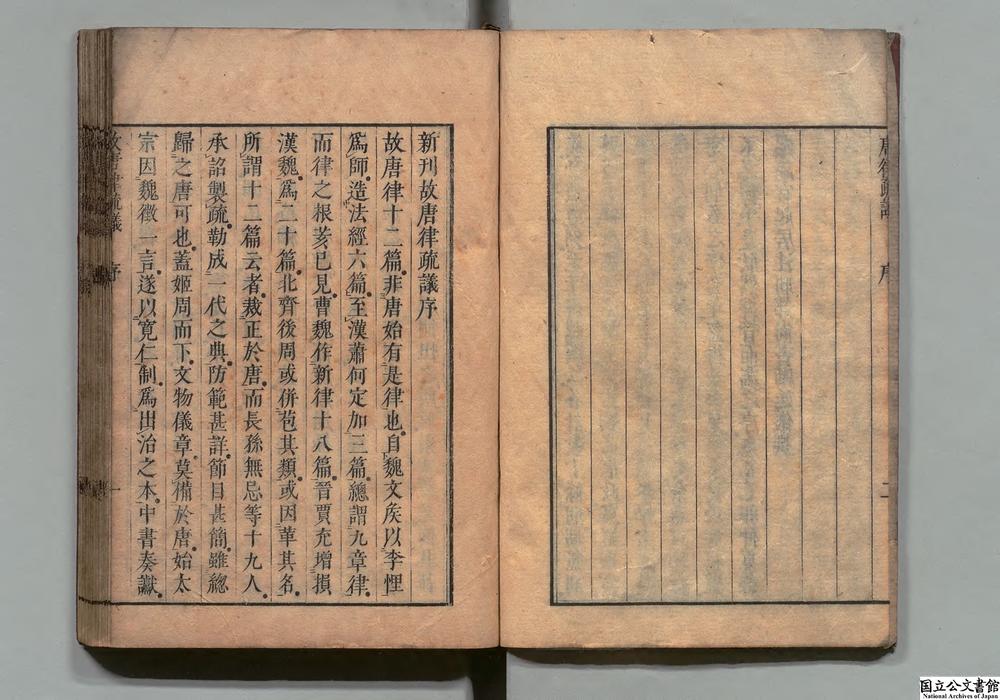 唐律疏議 序 二
新刊故唐律疏議序
故唐律十二篇。非唐始有是律也。自魏文矦以李悝
爲師。造法經六篇。至漢蕭何定加三篇。總謂九章律。
而律之根荄已見。曹魏作新律十八篇。晉賈充增損
漢魏。爲二十篇。北齊後周或併苞其類。或因革其名。
所謂十二篇云者。裁正於唐。而長孫無忌等十九人。
承詔製疏。勒成一代之典。防範甚詳。節目甚簡。雖緫
歸之唐可也。蓋姬周而下。文物儀章。莫備於唐。始太
宗因魏徵一言。遂以寛仁制。爲出治之本。中書奏讞。
故唐律疏議 序 一
国立公文書館
National Archives of Japan